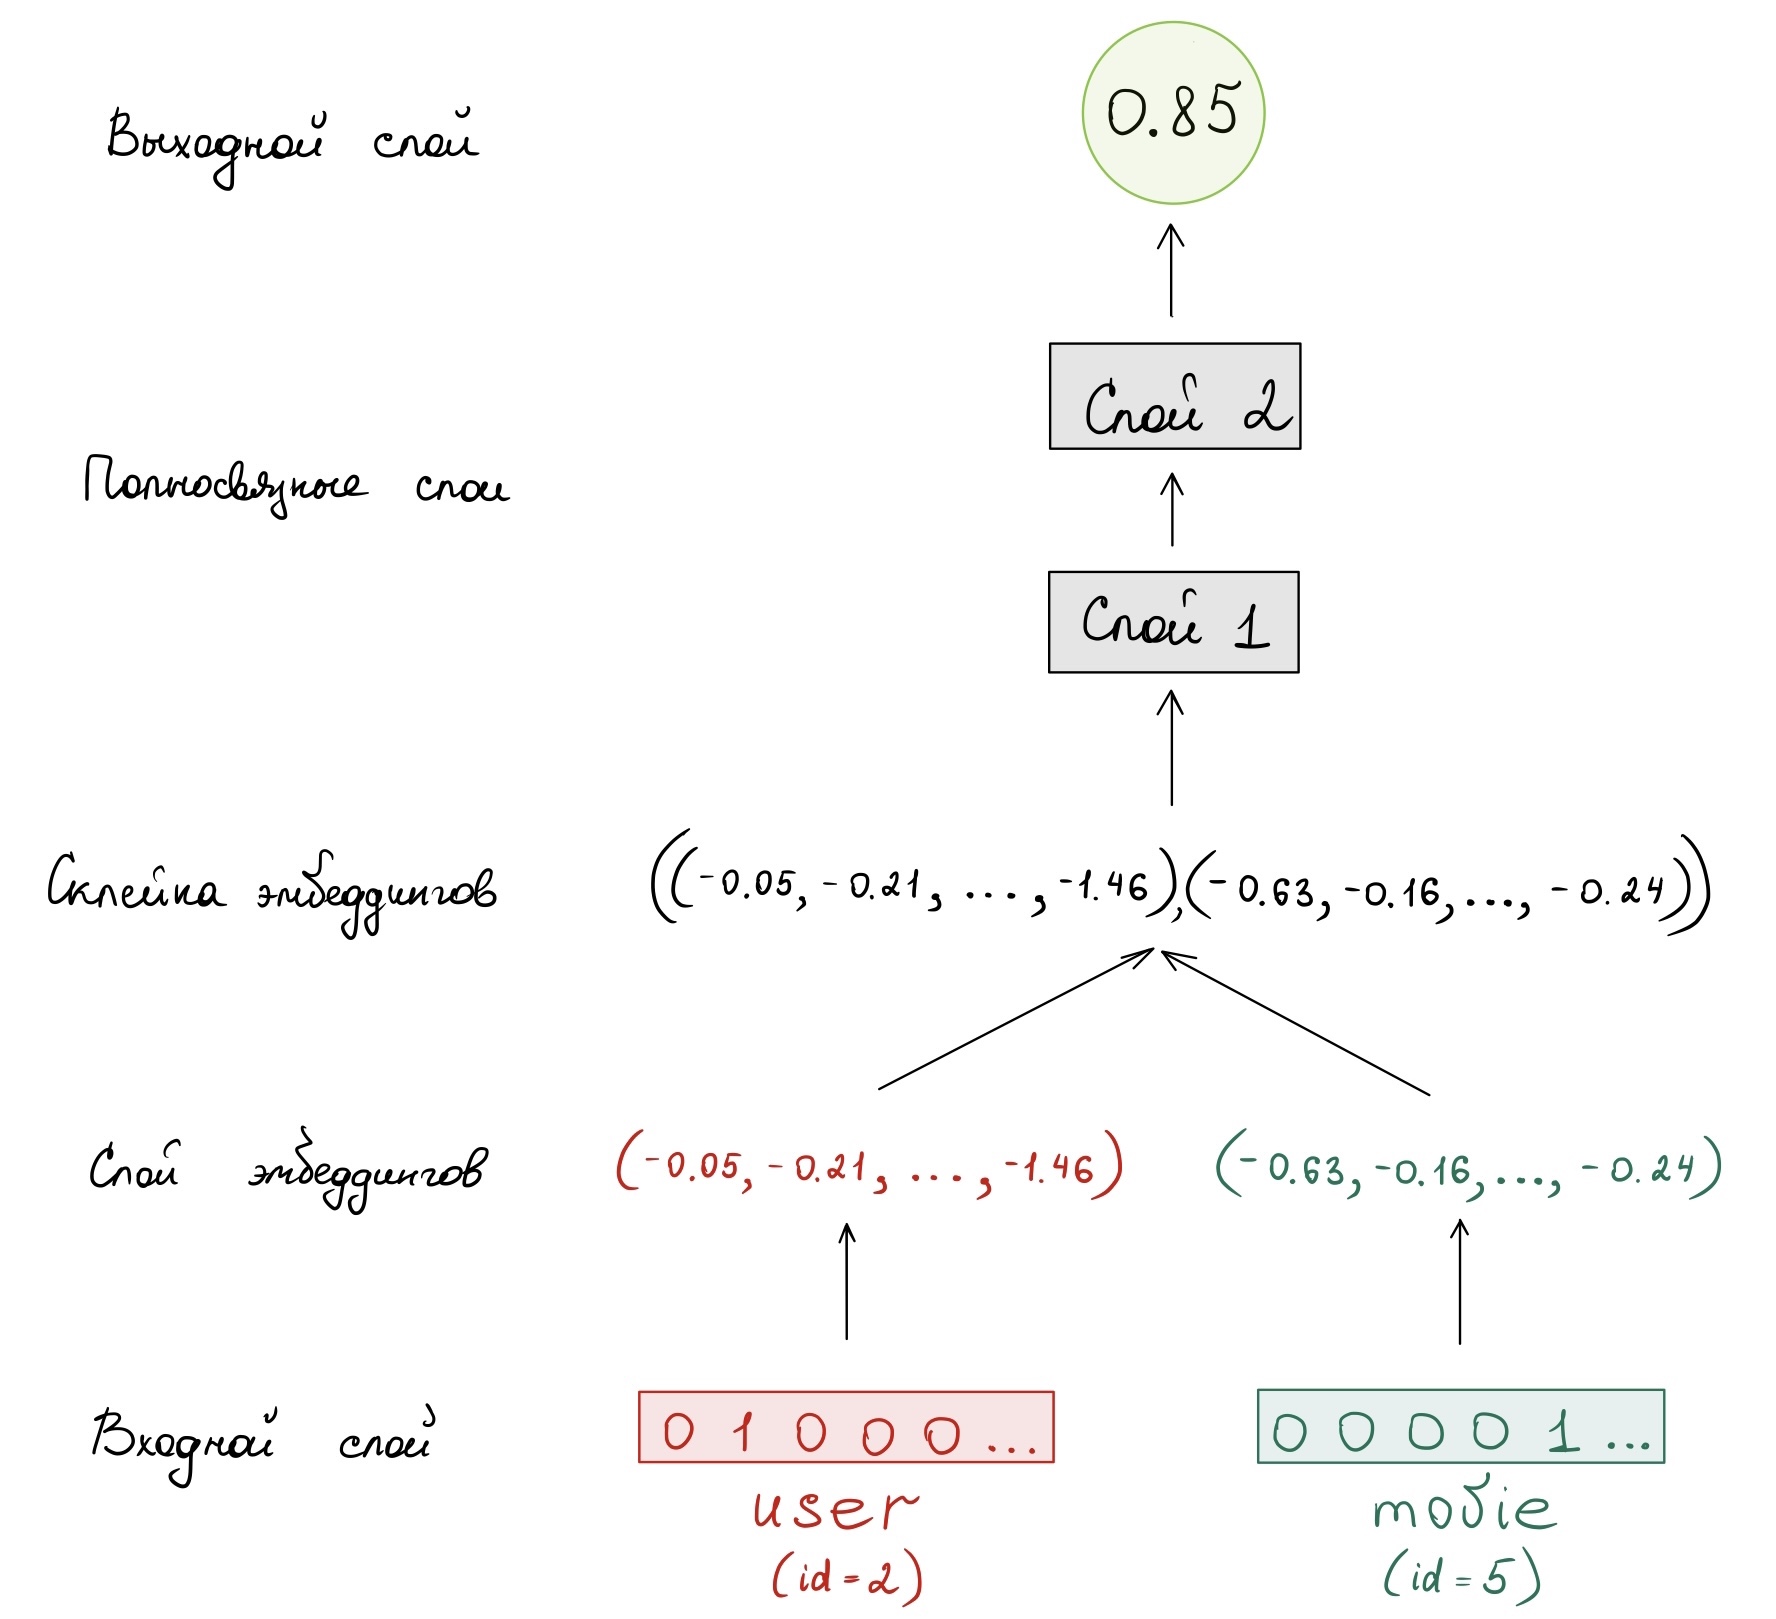 Выходной слой
0.85
Слой 2
Полносвязные слои
Слой 1
Склейка эмбеддингов
((-0.05, -0.21, ..., -1.46),(-0.63, -0.16, ..., -0.24))
Слой эмбеддингов
(-0.05, -0.21, ..., -1.46)
(-0.63, -0.16, ..., -0.24)
Входной слой
0 1 0 0 0 ...
0 0 0 0 1 ...
user
movie
(id=2)
(id=5)